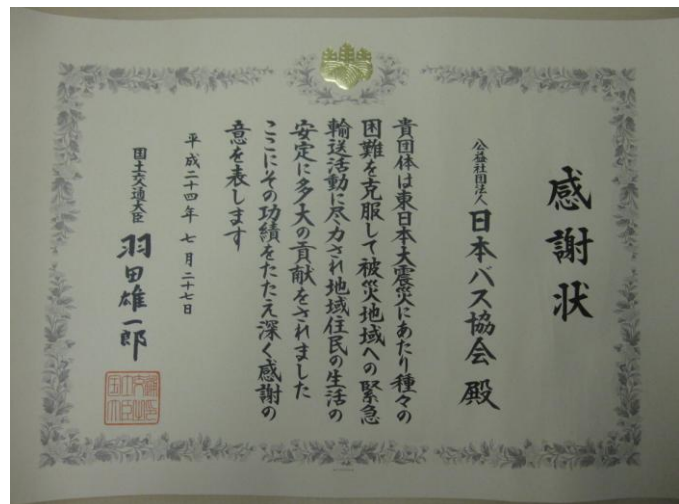 感謝状
公益社団法人 日本バス協会 殿
貴団体は東日本大震災にあたり種々の
困難を克服して被災地域への緊急
輸送活動に尽力され地域住民の生活の
安定に多大の貢献をされました
ここにその功績をたたえ深く感謝の
意を表します
平成二十四年 七月二十七日
国土交通大臣 羽田雄一郎